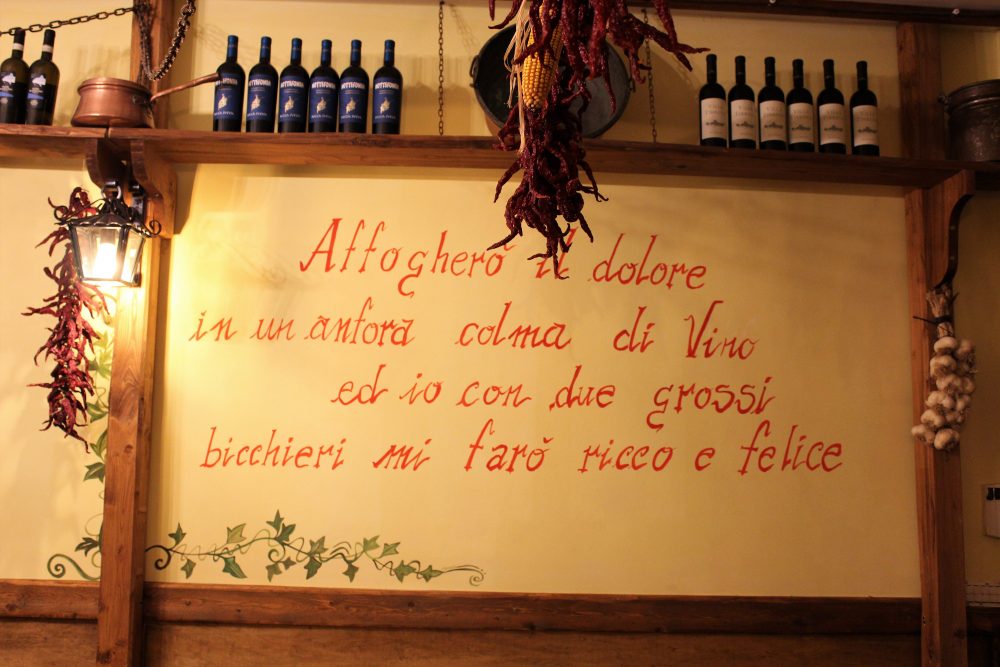 Affogherò il dolore
in un anfora colma di Vino
ed io con due grossi
bicchieri mi farò ricco e felice